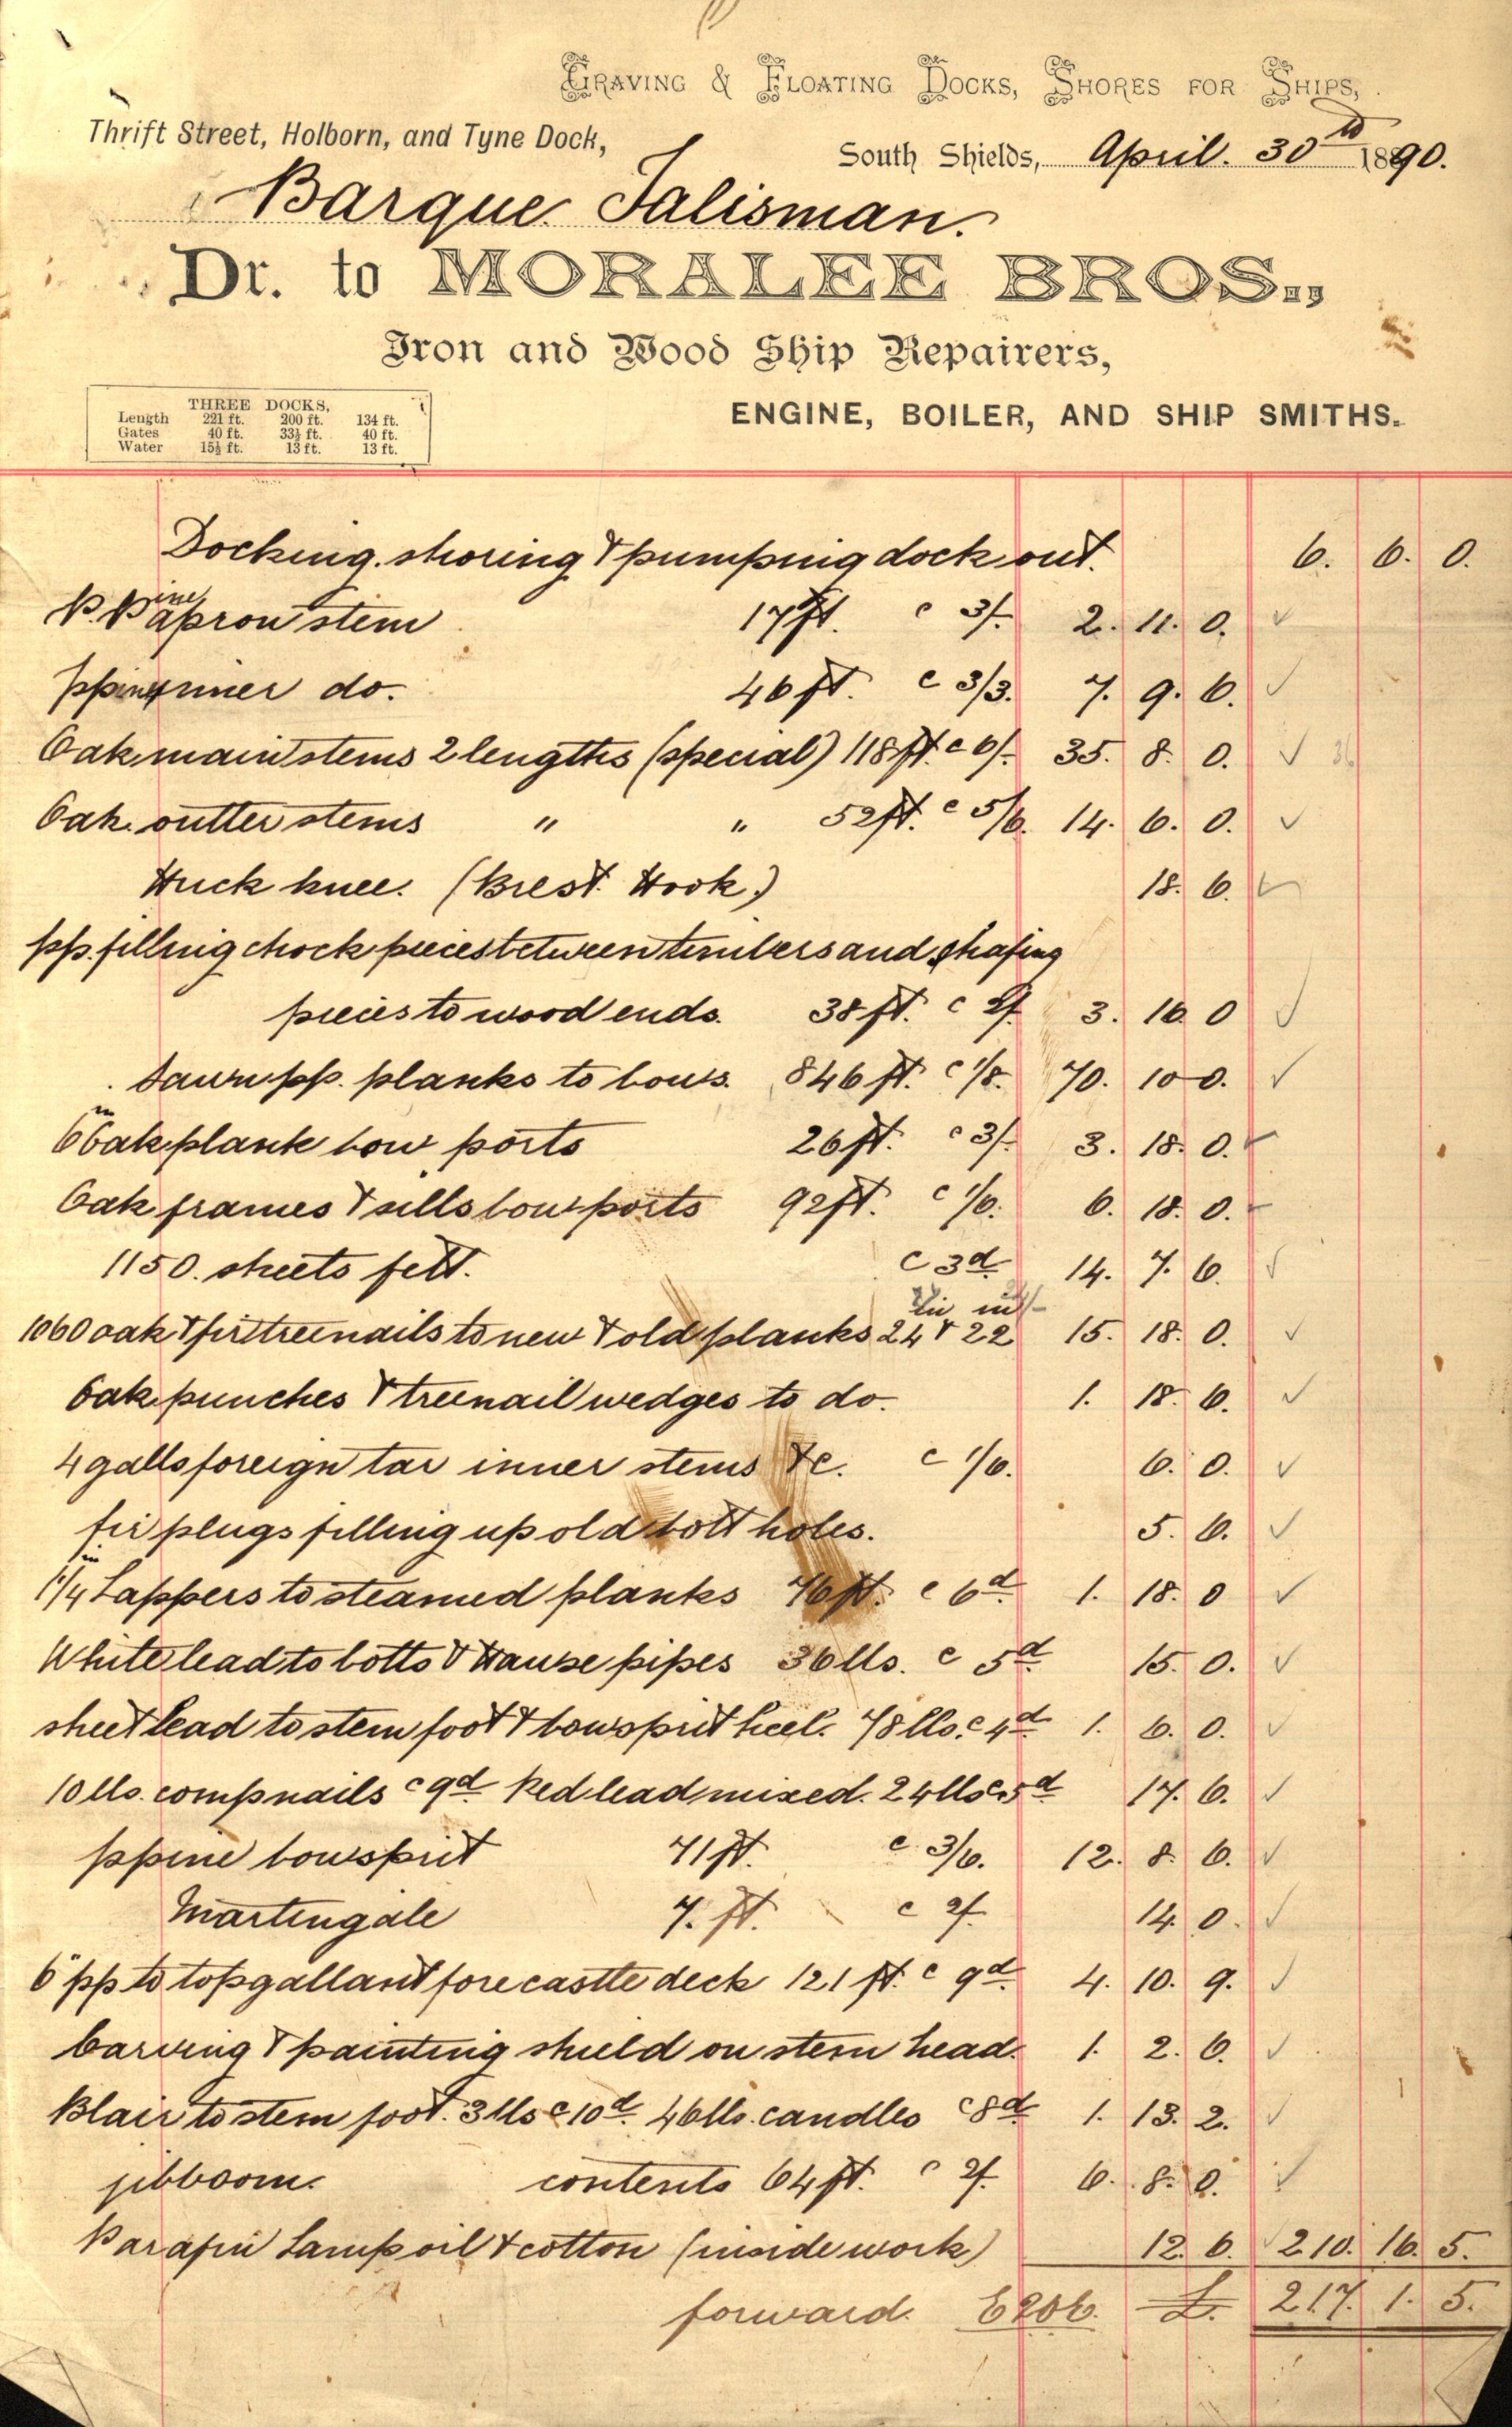 GRAVING & FLOATING DOCKS, SHORES FOR SHIPS,
Thrift Street, Holborn, and Tyne Dock,
South Shields, April. 30th 1890.
Barque Talisman.
Dr. to MORALEE BROS.,
Iron and Wood Ship Repairers,
ENGINE, BOILER, AND SHIP SMITHS.
THREE DOCKS.
Length 221 ft. 200 ft. 134 ft.
Gates 40 ft. 33½ ft. 40 ft.
Water 15½ ft. 13 ft. 13 ft.
Docking. shoring & pumping dock out. 6. 6. 0.
P. Pine apron stem 17 ft. c 3/- 2. 11. 0.
ppine inner do. 46 ft. c 3/3. 7. 9. 6.
Oak main stems 2 lengths (special) 118 ft. c 6/- 35. 8. 0.
Oak outter stems " " 52 ft. c 5/6. 14. 6. 0.
Huck knee. (Brest Hook.) 18. 6.
pp. filling chock pieces between timbers and chafing
pieces to wood ends. 38 ft. c 2/- 3. 16. 0
Sawn pp. planks to bows. 846 ft. c 1/8. 70. 10 0.
6in Oak plank bow ports 26 ft. c 3/- 3. 18. 0.
Oak frames & sills bow ports 92 ft. c 1/6. 6. 18. 0.
1150. sheets felt. c 3d. 14. 7. 6.
1060 oak & fir treenails to new & old planks 24 & 22 in 15. 18. 0.
Oak punches & treenail wedges to do. 1. 18. 6.
4 galls foreign tar inner stems &c. c 1/6. 6. 0.
fir plugs filling up old bolt holes. 5. 6.
1 1/4 in Lappers to steamed planks 76 ft. c 6d. 1. 18. 0
White lead to bolts & Hause pipes 36 lbs. c 5d. 15. 0.
sheet lead to stem foot & bowsprit heel. 78 lbs. c 4d. 1. 6. 0.
10 lbs. comp nails c 9d. Red lead mixed. 24 lbs c 5d. 17. 6.
ppine bowsprit 71 ft. c 3/6. 12. 8. 6.
Martingale 7. ft. c 2/- 14. 0.
6" pp to topgallant forecastle deck 121 ft. c 9d. 4. 10. 9.
Carving & painting shield on stem head. 1. 2. 6.
Blair to stem foot. 3 lbs c 10d. 46 lbs. candles c 8d. 1. 13. 2.
jibboom. contents 64 ft. c 2/- 6. 8. 0.
Parafin Lamp oil & cotton (inside work) 12. 6. 210. 16. 5.
forward. £. 217. 1. 5.